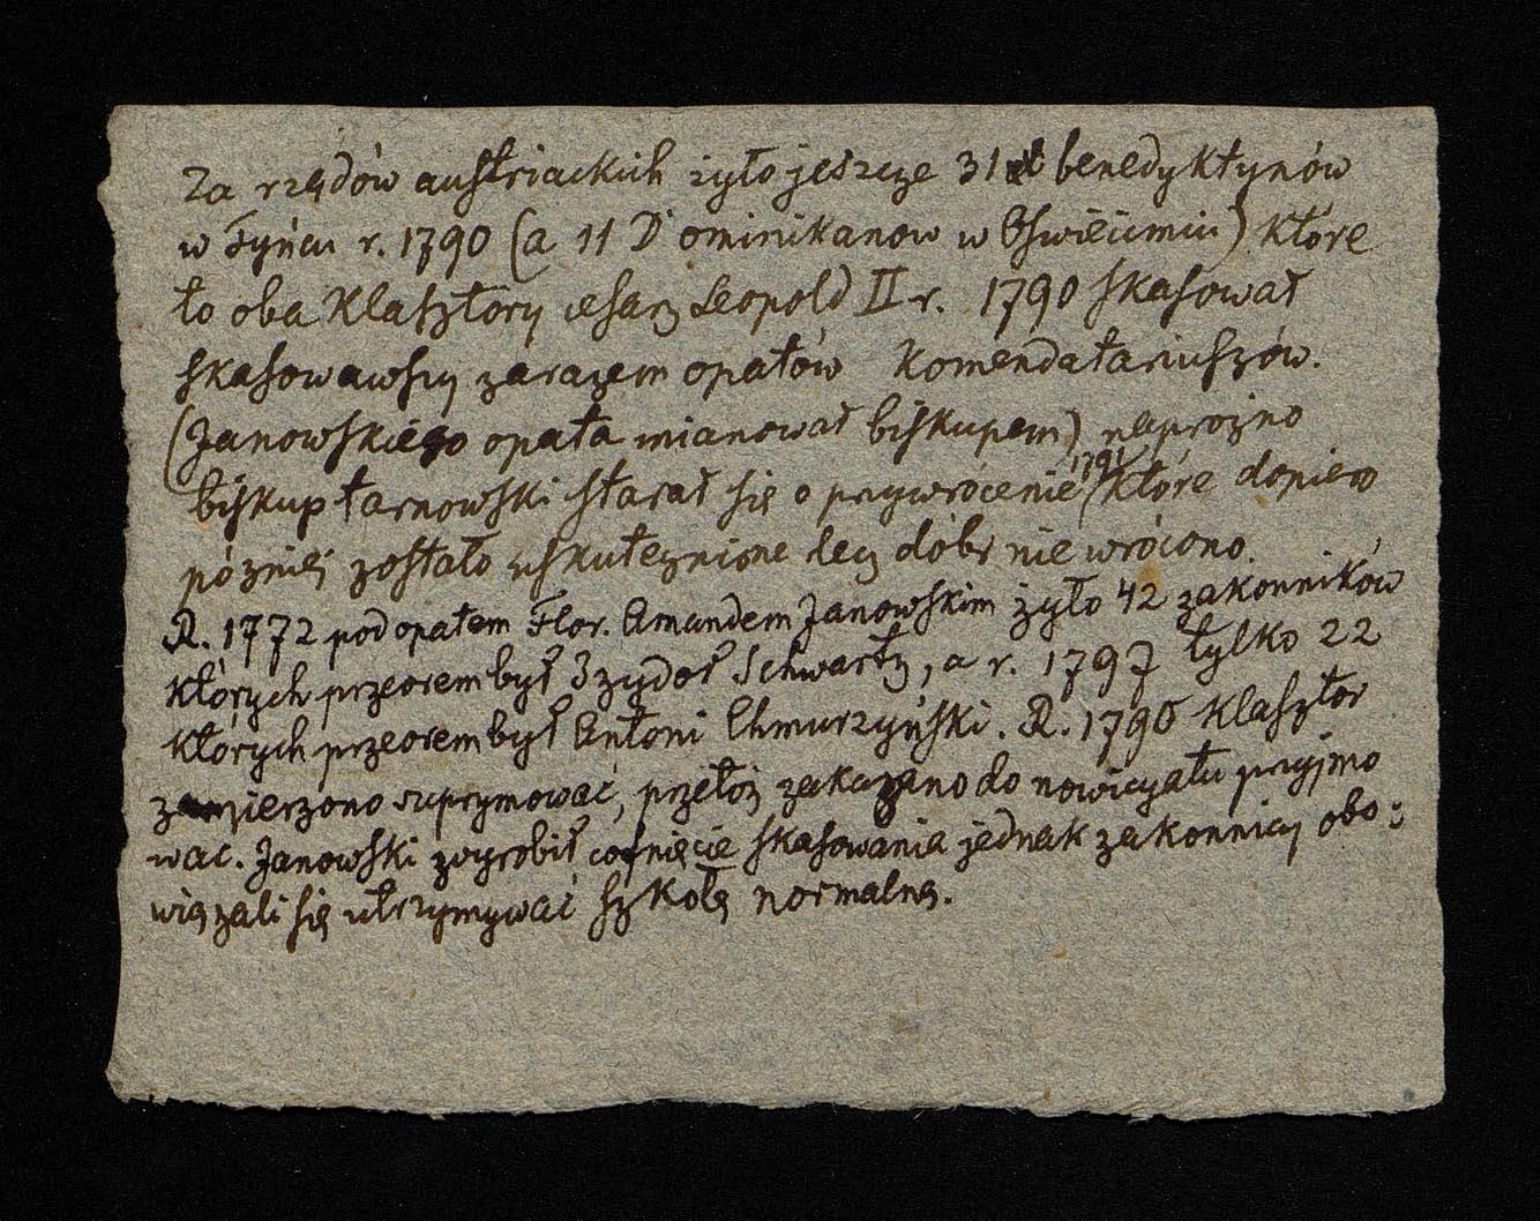 Za rządów austriackich żyło jeszcze 31 benedyktynów
w Tyńcu r. 1790 (a 11 Dominikanow w Oświecimiu) które
to oba Klasztory cesarz Leopold II r. 1790 skasował
skasowawszy zarazem opatów Komendatariuszów.
(Janowskiego opata mianował biskupem) naprozno
biskup tarnowski starał się o przywrócenie 1791 które dopiero
pózniej zostało uskutecznione lecz dóbr nie wrócono.
R. 1772 pod opatem Flor. Amandem Janowskim żyło 42 zakonników
których przeorem był Izydor Schwartz, a r. 1797 tylko 22
których przeorem był Antoni Chmurzyński. R. 1790 Klasztor
zamierzono suprymować, przetóż zakazano do nowicyatu przyjmo
wac. Janowski wyrobił cofnięcie skasowania jednak zakonnicy obo:
wiązali się utrzymywać szkołę normalną.